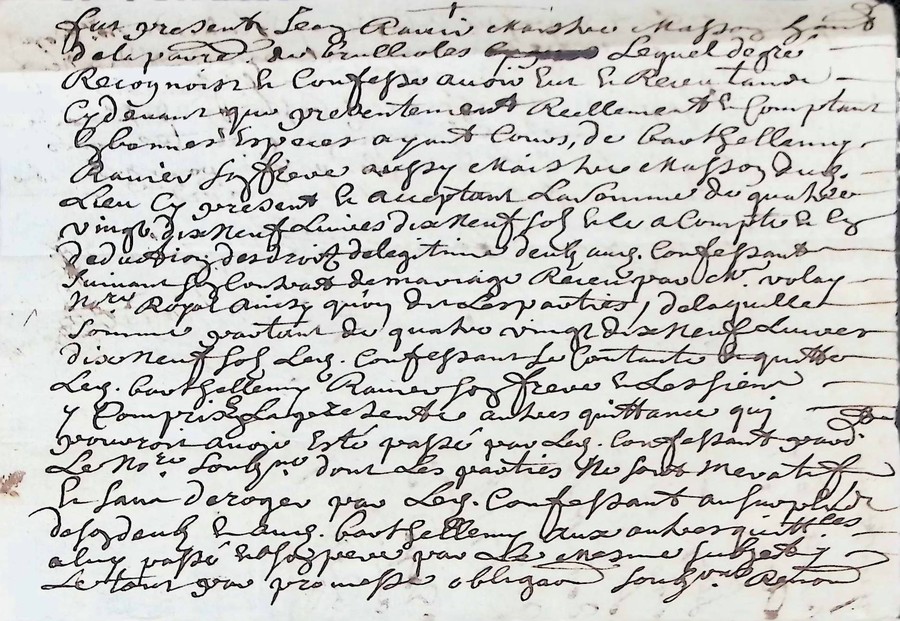 fut present Jean Ravier Maistre Masson habitt
de la parr. de brullioles Lequel de gré
Recognoist Et Confesse avoir Eut Et Receu tandt
Cy devant que presentement Reellement Et Comptant
En bonnes Especes ayant Cours, de barthellemy
Ravier son frere aussy Maistre Masson dud.
Lieu Cy present Et acceptant La Somme de quatre
vingt dix Neuf Livres dix Neuf sols Et ce a Compte Et En
deduction des droits de legitime deubs aud. Confessant
suivant son Contrat de mariage Receu par Me.
Nore. Royal Ainsy qu'on dit Les parties, de laquelle
Somme partant de quatre vingt dix Neuf Livres
dix Neuf sols Led. Confessant Se Contante Et quitte
Led. barthellemy Ravier son frere Et Les siens
y Compris En La presente autres quittance qui
pouvront avoir Esté passé par Led. Confessant pard.
Le Nore. Soubzne. dont Les parties Ne sont
Et sans deroger par Led. Confessant au surplus
de son deub Et aud. barthellemy aux autres quittces
a luy passé Et a son pere par Le Mesme subget
Le tout par promesse obligaon Soubz Renon